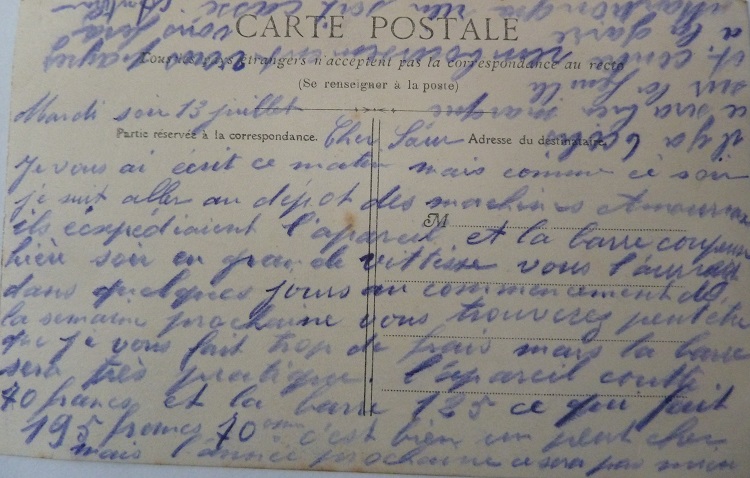 CARTE POSTALE
Tous les pays étrangers n'acceptent pas la correspondance au recto
(Se renseigner à la poste)
Mardi soir 13 juillet
Partie réservée à la correspondance.
Adresse du destinataire.
Cher
Je vous ai écrit ce matin mais comme ce soir
je suit aller au dépot des machines
ils éxpédiaient l'apareil et la barre coupeuse
hière soir en gran de vittisse vous l'aurez
dans quelques jours au commencement de
la semaine prochaine vous trouverez peut être
que je vous fait trop de frais mais la barre
sera très pratique. l'apareil coutte
70 francs et la barre 125 ce qui fait
195 francs 70 c'est bien un peut cher
mais l'année prochaine ce sera pas moin
M
il y a
ce sera bien marqué
sur la feuille
la gare vous fera